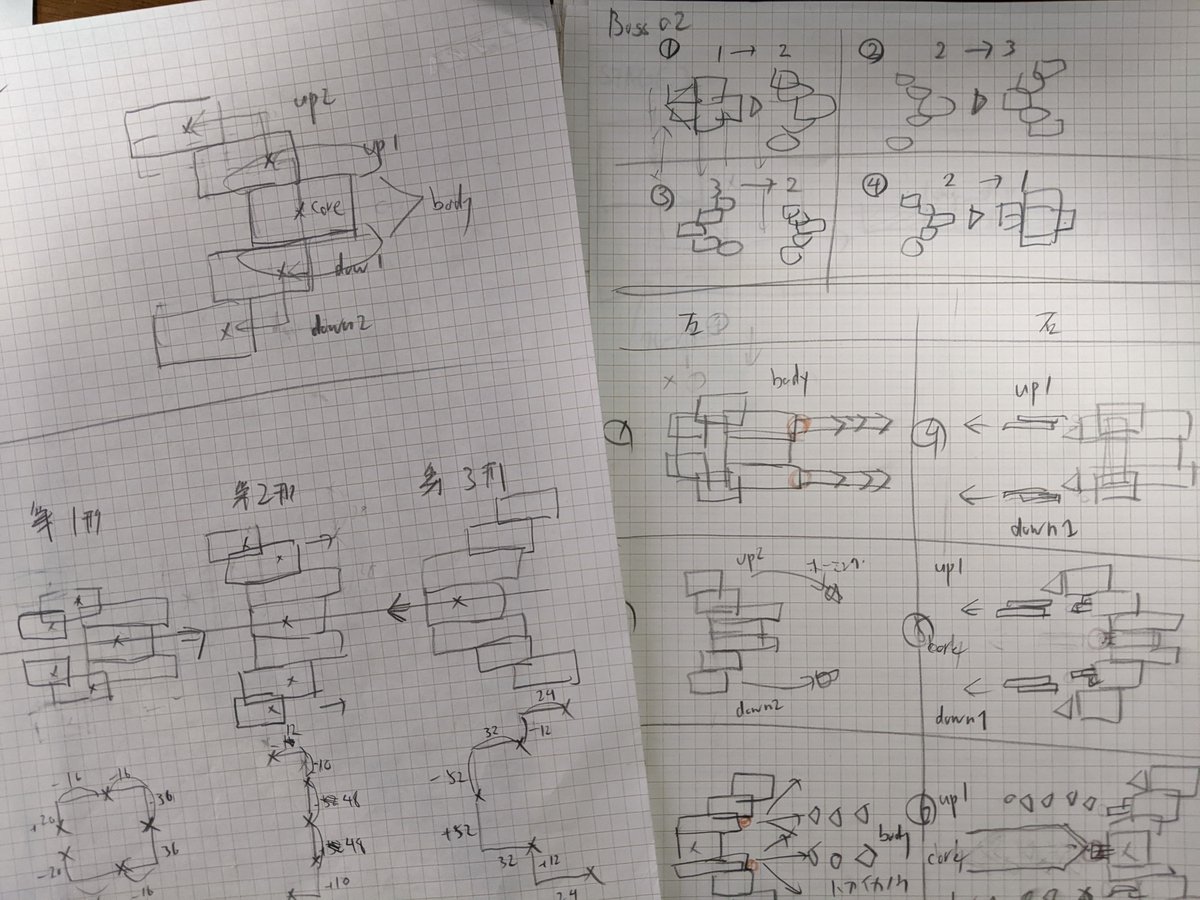 up2
up1
core
body
down2
第1形
第2形
第3形
-16
-16
+20
36
-20
36
-16
-12
-10
48
48
+10
24
-12
32
-52
+52
32
+12
24
Boss 02
① 1→2
② 2→3
③ 3→2
④ 2→1
body
up1
down1
up2
down2
up1
down1
body
up1
core